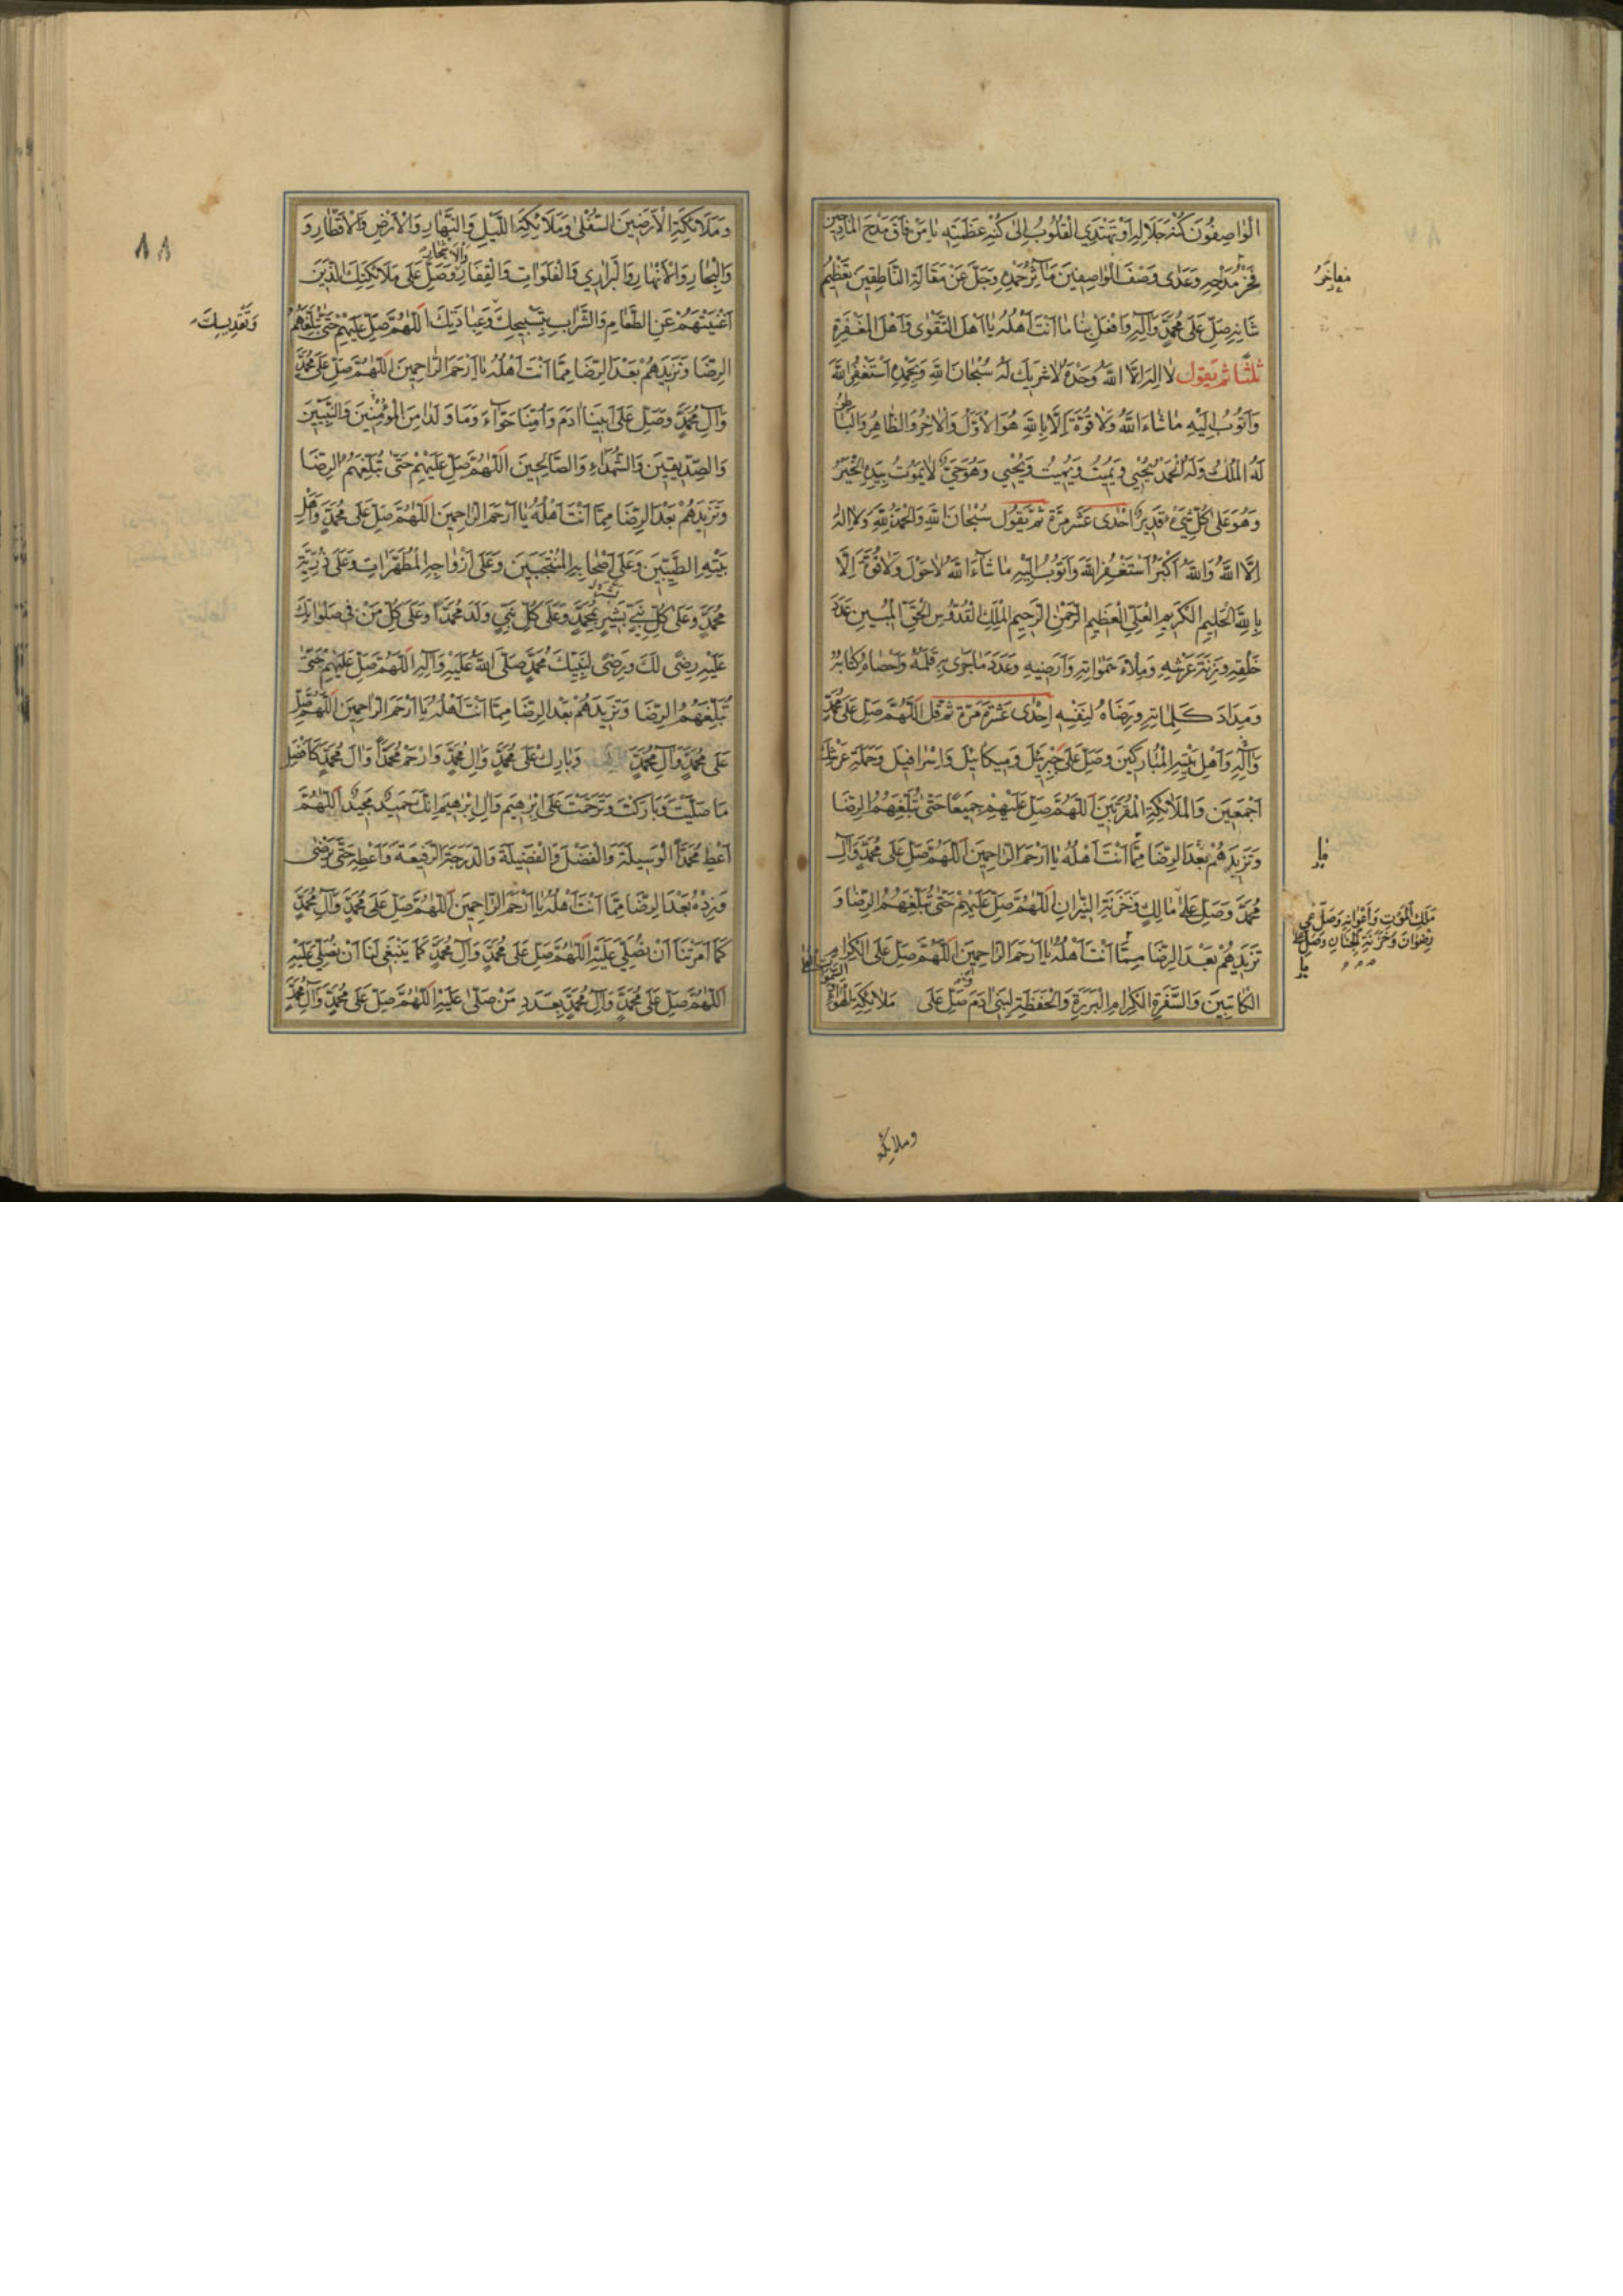 الْوٰاصِفُونَ كُنْهَ جَلَالِهِ اَوْ تَهْتَدِي الْقُلُوبُ اِلىٰ كُنْهِ عَظَمَتِهِ يٰا مَنْ فٰاقَ مَدْحَ الْمٰادِحِينَ
فَخْرُ مَدْحِهِ وَعَدٰى وَصْفَ الْوٰاصِفِينَ مَآثِرُ حَمْدِهِ وَجَلَّ عَنْ مَقَالَةِ النّٰاطِقِينَ تَعْظِيمُ
مفاخرُ
شَانِهِ صَلِّ عَلىٰ مُحَمَّدٍ وَآلِهِ وَافْعَلْ بِنٰا مٰا اَنْتَ اَهْلُهُ يٰا اَهْلَ التَّقْوٰى وَاَهْلَ الْمَغْفِرَةِ
ثلثًا ثم يَقول لاٰ اِلٰهَ اِلَّا اللّٰهُ وَحْدَهُ لاٰ شَرِيكَ لَهُ سُبْحٰانَ اللّٰهِ وَبِحَمْدِهِ اَسْتَغْفِرُ اللّٰهَ
وَاَتُوبُ اِلَيْهِ مٰا شٰاءَ اللّٰهُ وَلاٰ قُوَّةَ اِلَّا بِاللّٰهِ هُوَ الْاَوَّلُ وَالْاٰخِرُ وَالظّٰاهِرُ وَالْبٰاطِنُ
لَهُ الْمُلْكُ وَلَهُ الْحَمْدُ يُحْيِي وَيُمِيتُ وَيُمِيتُ وَيُحْيِي وَهُوَ حَيٌّ لاٰ يَمُوتُ بِيَدِهِ الْخَيْرُ
وَهُوَ عَلىٰ كُلِّ شَيْءٍ قَدِيرٌ اِحْدٰى عَشْرَ مَرَّة ثُمَّ يَقُول سُبْحٰانَ اللّٰهِ وَالْحَمْدُ لِلّٰهِ وَلاٰ اِلٰهَ
اِلَّا اللّٰهُ وَاللّٰهُ اَكْبَرُ اَسْتَغْفِرُ اللّٰهَ وَاَتُوبُ اِلَيْهِ مٰا شٰآءَ اللّٰهُ لاٰ حَوْلَ وَلاٰ قُوَّةَ اِلَّا
بِاللّٰهِ الْحَلِيمِ الْكَرِيمِ الْعَلِيِّ الْعَظِيمِ الرَّحْمٰنِ الرَّحِيمِ الْمَلِكِ الْقُدُّوسِ الْحَقِّ الْمُبِينِ عَدَدَ
خَلْقِهِ وَزِنَةَ عَرْشِهِ وَمِلْاَ سَمٰوٰاتِهِ وَاَرَضِيهِ وَعَدَدَ مٰا جَرٰى بِهِ قَلَمُهُ وَاَحْصٰاهُ كِتٰابُهُ
وَمِدَادَ كَلِمٰاتِهِ وَرِضَاهُ لِنَفْسِهِ اِحْدٰى عَشْرَةَ مَرّة ثم قل اَللّٰهُمَّ صَلِّ عَلىٰ مُحَمَّدٍ
وَآلِهِ وَاَهْلِ بَيْتِهِ الْمُبٰارَكِينَ وَصَلِّ عَلىٰ جَبْرَئِيلَ وَمِيكٰائِيلَ وَاِسْرٰافِيلَ وَحَمَلَةِ عَرْشِكَ
اَجْمَعِينَ وَالْمَلاٰئِكَةِ الْمُقَرَّبِينَ اَللّٰهُمَّ صَلِّ عَلَيْهِمْ جَمِيعًا حَتّٰى تُبَلِّغَهُمُ الرِّضَا
وَتَزِيدَهُمْ بَعْدَ الرِّضَا مِمَّا اَنْتَ اَهْلُهُ يٰا اَرْحَمَ الرّٰاحِمِينَ اَللّٰهُمَّ صَلِّ عَلىٰ مُحَمَّدٍ وَآلِ
مُحَمَّدٍ وَصَلِّ عَلىٰ مٰالِكٍ وَخَزَنَةِ النِّيرٰانِ اَللّٰهُمَّ صَلِّ عَلَيْهِمْ حَتّٰى تُبَلِّغَهُمُ الرِّضٰا وَ
مَلَكِ الْمَوْتِ وَاَعْوٰانِهِ وَصَلِّ عَلىٰ
رِضْوٰانَ وَخَزَنَةِ الْجِنٰانِ وَصَلِّ عَلىٰ
تَزِيدَهُمْ بَعْدَ الرِّضَا مِمَّا اَنْتَ اَهْلُهُ يٰا اَرْحَمَ الرّٰاحِمِينَ اَللّٰهُمَّ صَلِّ عَلَى الْكِرٰامِ
الْكٰاتِبِينَ وَالسَّفَرَةِ الْكِرٰامِ الْبَرَرَةِ وَالْحَفَظَةِ لِبَنِي اٰدَمَ وَصَلِّ عَلىٰ مَلاٰئِكَةِ الْهَوٰاءِ
وملائكة
٨٨
وَمَلَائِكَةِ الْاَرَضِينَ السُّفْلىٰ وَمَلَائِكَةِ اللَّيْلِ وَالنَّهٰارِ وَالْاَرْضِ وَالْاَقْطٰارِ وَ
وَالْبِحٰارِ وَالْاَنْهٰارِ وَالْبَرٰارِي وَالْفَلَوٰاتِ وَالْقِفَارِ وَالْاَشْجٰارِ وَصَلِّ عَلىٰ مَلاٰئِكَتِكَ الَّذِينَ
اَغْنَيْتَهُمْ عَنِ الطَّعٰامِ وَالشَّرٰابِ بِتَسْبِيحِكَ وَعِبٰادَتِكَ اَللّٰهُمَّ صَلِّ عَلَيْهِمْ حَتّٰى تُبَلِّغَهُمُ
وَتَقْدِيسِكَ
الرِّضَا وَتَزِيدَهُمْ بَعْدَ الرِّضَا مِمَّا اَنْتَ اَهْلُهُ يٰا اَرْحَمَ الرّٰاحِمِينَ اَللّٰهُمَّ صَلِّ عَلىٰ مُحَمَّدٍ
وَآلِ مُحَمَّدٍ وَصَلِّ عَلىٰ اَبِينَا اٰدَمَ وَاُمِّنٰا حَوّٰآءَ وَمٰا وَلَدٰا مِنَ الْمُؤْمِنِينَ وَالنَّبِيِّينَ
وَالصِّدِّيقِينَ وَالشُّهَدٰاءِ وَالصَّالِحِينَ اَللّٰهُمَّ صَلِّ عَلَيْهِمْ حَتّٰى تُبَلِّغَهُمُ الرِّضَا
وَتَزِيدَهُمْ بَعْدَ الرِّضَا مِمَّا اَنْتَ اَهْلُهُ يٰا اَرْحَمَ الرّٰاحِمِينَ اَللّٰهُمَّ صَلِّ عَلىٰ مُحَمَّدٍ وَاَهْلِ
بَيْتِهِ الطَّيِّبِينَ وَعَلىٰ اَصْحٰابِهِ الْمُنْتَجَبِينَ وَعَلىٰ اَزْوٰاجِهِ الْمُطَهَّرٰاتِ وَعَلىٰ ذُرِّيَّةِ
مُحَمَّدٍ وَعَلىٰ كُلِّ نَبِيٍّ بَشَّرَ بِمُحَمَّدٍ وَعَلىٰ كُلِّ نَبِيٍّ وَلَدَ مُحَمَّدًا وَعَلىٰ كُلِّ مَنْ فِي صَلَوٰاتِكَ
عَلَيْهِ رِضًى لَكَ وَرِضًى لِنَبِيِّكَ مُحَمَّدٍ صَلَّى اللّٰهُ عَلَيْهِ وَآلِهِ اَللّٰهُمَّ صَلِّ عَلَيْهِمْ حَتّٰى
تُبَلِّغَهُمُ الرِّضَا وَتَزِيدَهُمْ بَعْدَ الرِّضَا مِمَّا اَنْتَ اَهْلُهُ يٰا اَرْحَمَ الرّٰاحِمِينَ اَللّٰهُمَّ صَلِّ
عَلىٰ مُحَمَّدٍ وَآلِ مُحَمَّدٍ وَبٰارِكْ عَلىٰ مُحَمَّدٍ وَآلِ مُحَمَّدٍ وَارْحَمْ مُحَمَّدًا وَآلَ مُحَمَّدٍ كَاَفْضَلِ
مٰا صَلَّيْتَ وَبَارَكْتَ وَتَرَحَّمْتَ عَلىٰ اِبْرٰهِيمَ وَآلِ اِبْرٰهِيمَ اِنَّكَ حَمِيدٌ مَجِيدٌ اَللّٰهُمَّ
اَعْطِ مُحَمَّدًا الْوَسِيلَةَ وَالْفَضْلَ وَالْفَضِيلَةَ وَالدَّرَجَةَ الرَّفِيعَةَ وَاَعْطِهِ حَتّٰى يَرْضٰى
وَزِدْهُ بَعْدَ الرِّضَا مِمَّا اَنْتَ اَهْلُهُ يٰا اَرْحَمَ الرّٰاحِمِينَ اَللّٰهُمَّ صَلِّ عَلىٰ مُحَمَّدٍ وَآلِ مُحَمَّدٍ
كَمٰا اَمَرْتَنٰا اَنْ نُصَلِّيَ عَلَيْهِ اَللّٰهُمَّ صَلِّ عَلىٰ مُحَمَّدٍ وَآلِ مُحَمَّدٍ كَمٰا يَنْبَغِي لَنٰا اَنْ نُصَلِّيَ عَلَيْهِ
اَللّٰهُمَّ صَلِّ عَلىٰ مُحَمَّدٍ وَآلِ مُحَمَّدٍ بِعَدَدِ مَنْ صَلّٰى عَلَيْهِ اَللّٰهُمَّ صَلِّ عَلىٰ مُحَمَّدٍ وَآلِ مُحَمَّدٍ